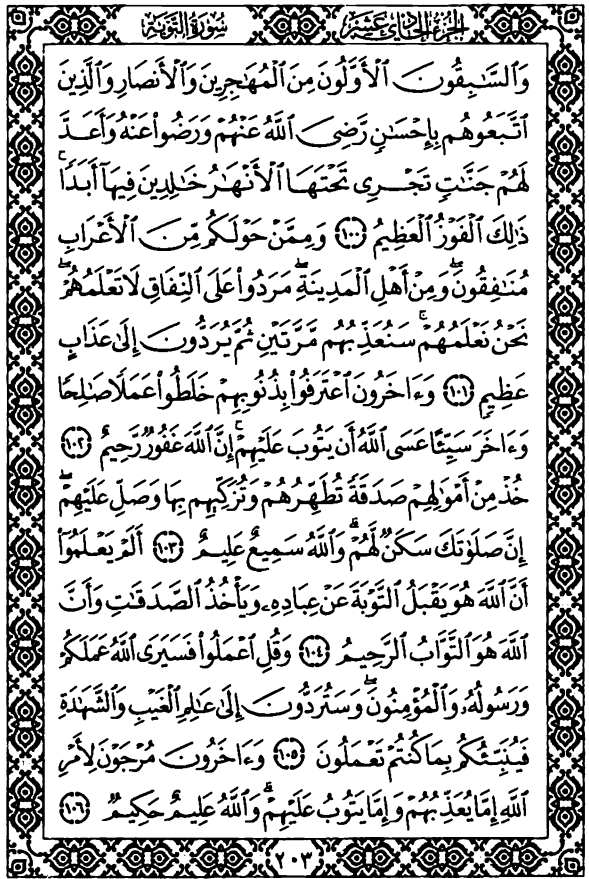 سُورَةُ التَّوْبَةِ الجُزْءُ الحَادِي عَشَرَ
وَٱلسَّٰبِقُونَ ٱلْأَوَّلُونَ مِنَ ٱلْمُهَٰجِرِينَ وَٱلْأَنصَارِ وَٱلَّذِينَ
ٱتَّبَعُوهُم بِإِحْسَٰنٍ رَّضِىَ ٱللَّهُ عَنْهُمْ وَرَضُوا۟ عَنْهُ وَأَعَدَّ
لَهُمْ جَنَّٰتٍ تَجْرِى تَحْتَهَا ٱلْأَنْهَٰرُ خَٰلِدِينَ فِيهَآ أَبَدًا ۚ
ذَٰلِكَ ٱلْفَوْزُ ٱلْعَظِيمُ ١٠٠ وَمِمَّنْ حَوْلَكُم مِّنَ ٱلْأَعْرَابِ
مُنَٰفِقُونَ ۖ وَمِنْ أَهْلِ ٱلْمَدِينَةِ ۖ مَرَدُوا۟ عَلَى ٱلنِّفَاقِ لَا تَعْلَمُهُمْ ۖ
نَحْنُ نَعْلَمُهُمْ ۚ سَنُعَذِّبُهُم مَّرَّتَيْنِ ثُمَّ يُرَدُّونَ إِلَىٰ عَذَابٍ
عَظِيمٍ ١٠١ وَءَاخَرُونَ ٱعْتَرَفُوا۟ بِذُنُوبِهِمْ خَلَطُوا۟ عَمَلًا صَٰلِحًا
وَءَاخَرَ سَيِّئًا عَسَى ٱللَّهُ أَن يَتُوبَ عَلَيْهِمْ ۚ إِنَّ ٱللَّهَ غَفُورٌ رَّحِيمٌ ١٠٢
خُذْ مِنْ أَمْوَٰلِهِمْ صَدَقَةً تُطَهِّرُهُمْ وَتُزَكِّيهِم بِهَا وَصَلِّ عَلَيْهِمْ ۖ
إِنَّ صَلَوٰتَكَ سَكَنٌ لَّهُمْ ۗ وَٱللَّهُ سَمِيعٌ عَلِيمٌ ١٠٣ أَلَمْ يَعْلَمُوٓا۟
أَنَّ ٱللَّهَ هُوَ يَقْبَلُ ٱلتَّوْبَةَ عَنْ عِبَادِهِۦ وَيَأْخُذُ ٱلصَّدَقَٰتِ وَأَنَّ
ٱللَّهَ هُوَ ٱلتَّوَّابُ ٱلرَّحِيمُ ١٠٤ وَقُلِ ٱعْمَلُوا۟ فَسَيَرَى ٱللَّهُ عَمَلَكُمْ
وَرَسُولُهُۥ وَٱلْمُؤْمِنُونَ ۖ وَسَتُرَدُّونَ إِلَىٰ عَٰلِمِ ٱلْغَيْبِ وَٱلشَّهَٰدَةِ
فَيُنَبِّئُكُم بِمَا كُنتُمْ تَعْمَلُونَ ١٠٥ وَءَاخَرُونَ مُرْجَوْنَ لِأَمْرِ
ٱللَّهِ إِمَّا يُعَذِّبُهُمْ وَإِمَّا يَتُوبُ عَلَيْهِمْ ۗ وَٱللَّهُ عَلِيمٌ حَكِيمٌ ١٠٦
٢٠٣